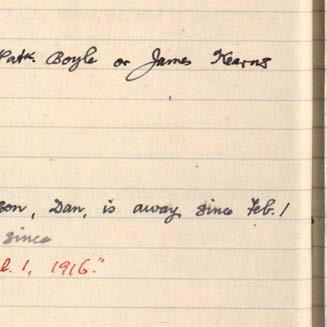 Patk. Boyle or James Kearns
son, Dan, is away since Feb. 1
since
1, 1916."